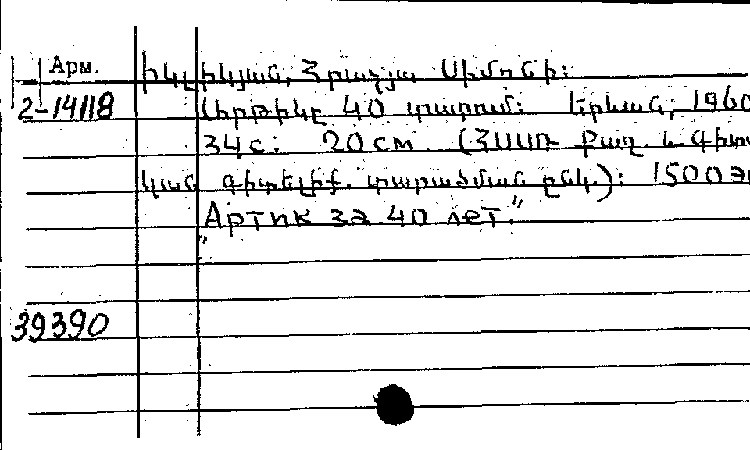 Арм. Իկլիկյան, Հրաչյա Սիմոնի:
2-14118 Արթիկը 40 տարում: Երևան, 1960
34 с: 20 см (ՀՍՍՌ Քաղ. և Գիտ
կան գիտելիք. տարածման ընկ.): 1500 э
"Артик за 40 лет."
39390